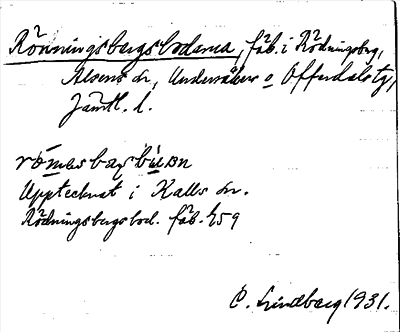 Rönningsbergsbodarna, fäb. i Rödningsberg,
Alsens sn, Undersåkers o Offerdals tg,
Jämtl. l.
Upptecknat i Kalls sn.
Rödningsbergsbod. fäb. h59
C. Lindberg 1931.